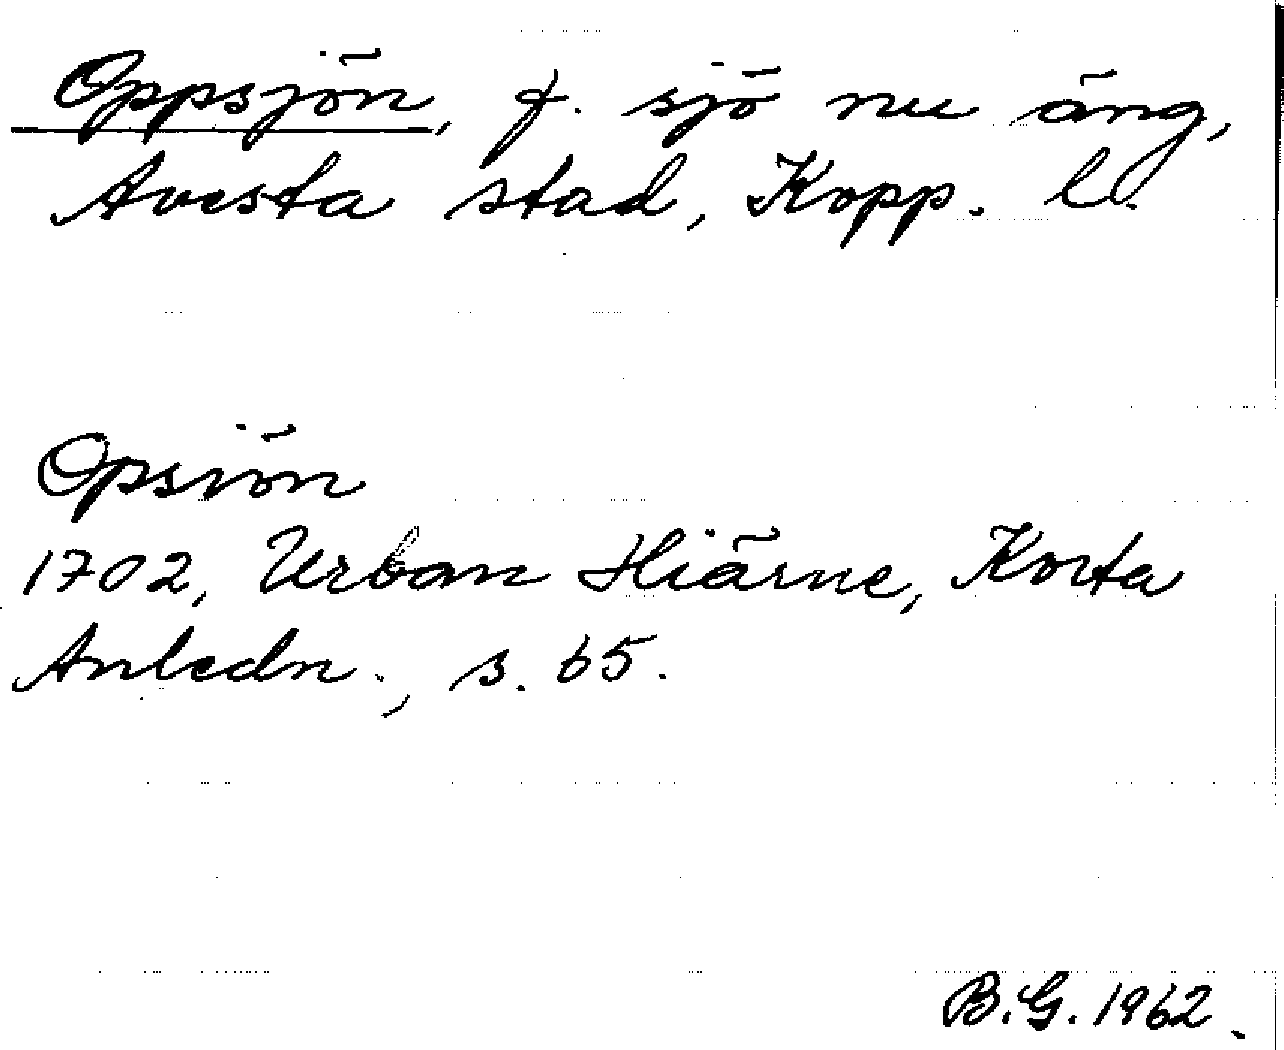 Oppsjön, f. sjö nu äng,
Avesta stad, Kopp. l.
Opsiön
1702, Urban Hiärne, Korta
Anledn., s. 65.
B.G. 1962.